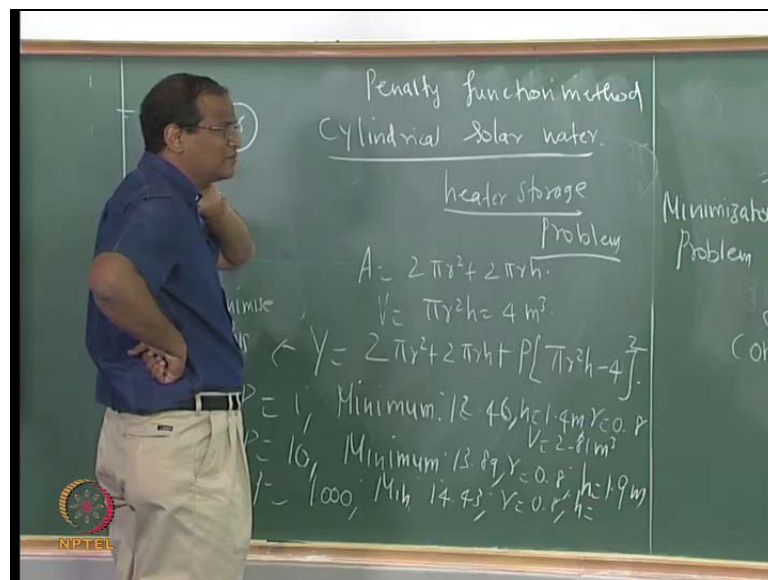 Penalty function method
Cylindrical Solar water.
heater storage
Problem
A = 2πr²+2πrh.
V = πr²h = 4 m³
← Y = 2πr²+2πrh + P[πr²h-4]².
P = 1, Minimum: 12.46, h=1.4m r=0.8
V=2.81m³
P = 10, Minimum: 13.89, r=0.8, h=1.9m
P = 1000, Min 14.43, r=0.8, h=
Minimization
Problem
NPTEL